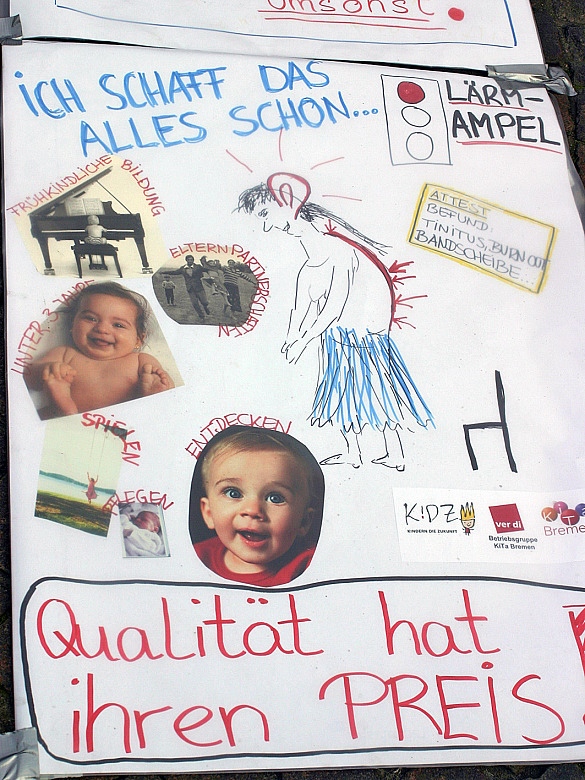 umsonst
iCH SCHAFF DAS
ALLES SCHON...
LÄRM-
AMPEL
FRÜHKINDLICHE BILDUNG
ATTEST
BEFUND:
TINITUS, BURN OUT
BANDSCHEIBE...
ELTERN PARTNERSCHAFTEN
UNTER 3 JAHRE
SPIELEN
ENTDECKEN
PFLEGEN
KiDZ
KINDERN DIE ZUKUNFT
ver di
Betriebsgruppe
KiTa Bremen
KiTA
Breme
Qualität hat
ihren PREIS!